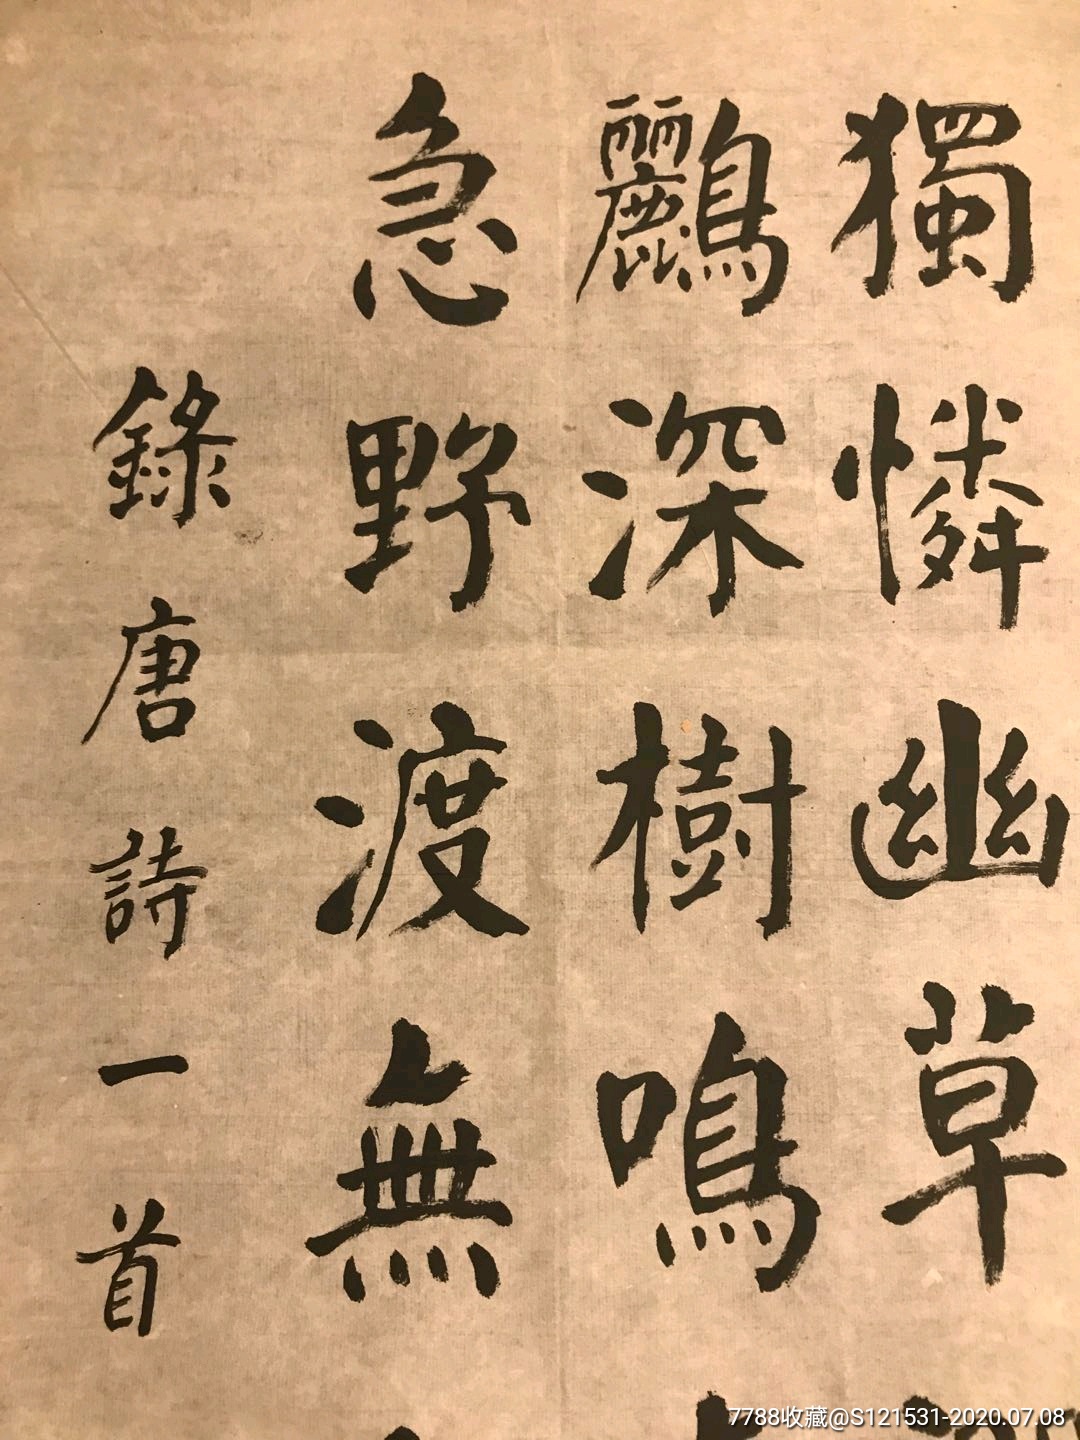 獨憐幽草
鸝深樹鳴
急野渡無
錄唐詩一首
7788收藏@S121531-2020.07.08